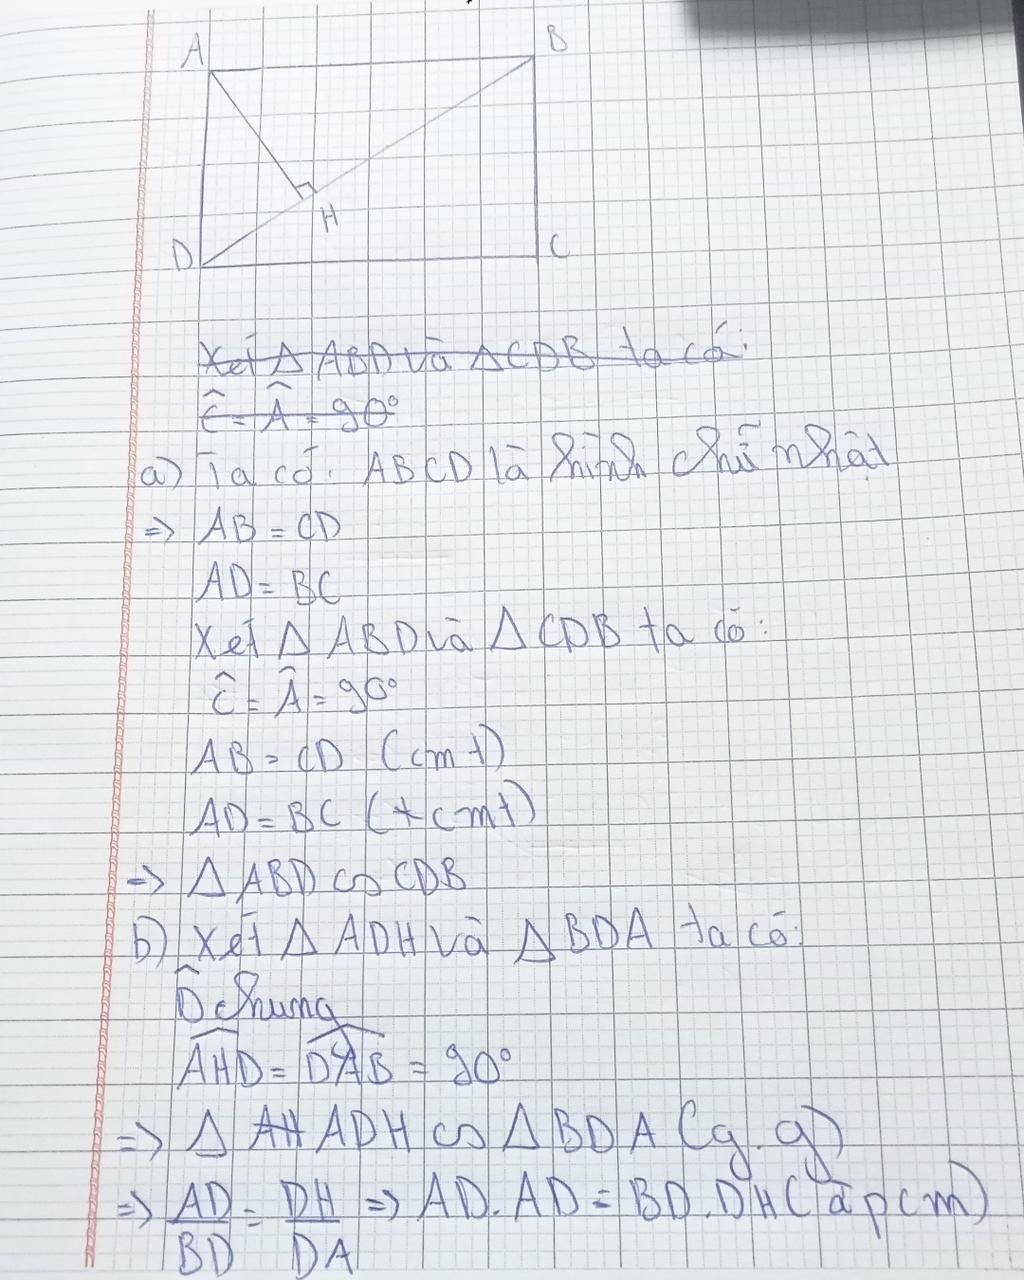 A B
H
D C
Xét Δ ABD và Δ CDB ta có:
Ĉ = Â = 90°
a) Ta có: ABCD là hình chữ nhật
=> AB = CD
AD = BC
Xét Δ ABD và Δ CDB ta có:
Ĉ = Â = 90°
AB = CD (cmt)
AD = BC (tcmt)
=> Δ ABD ∽ CDB
b) Xét Δ ADH và Δ BDA ta có:
D̂ chung
AHD = DAB = 90°
=> Δ AH ADH ∽ Δ BDA (g.g)
=> AD/BD = DH/DA => AD.AD = BD.DH (đpcm)